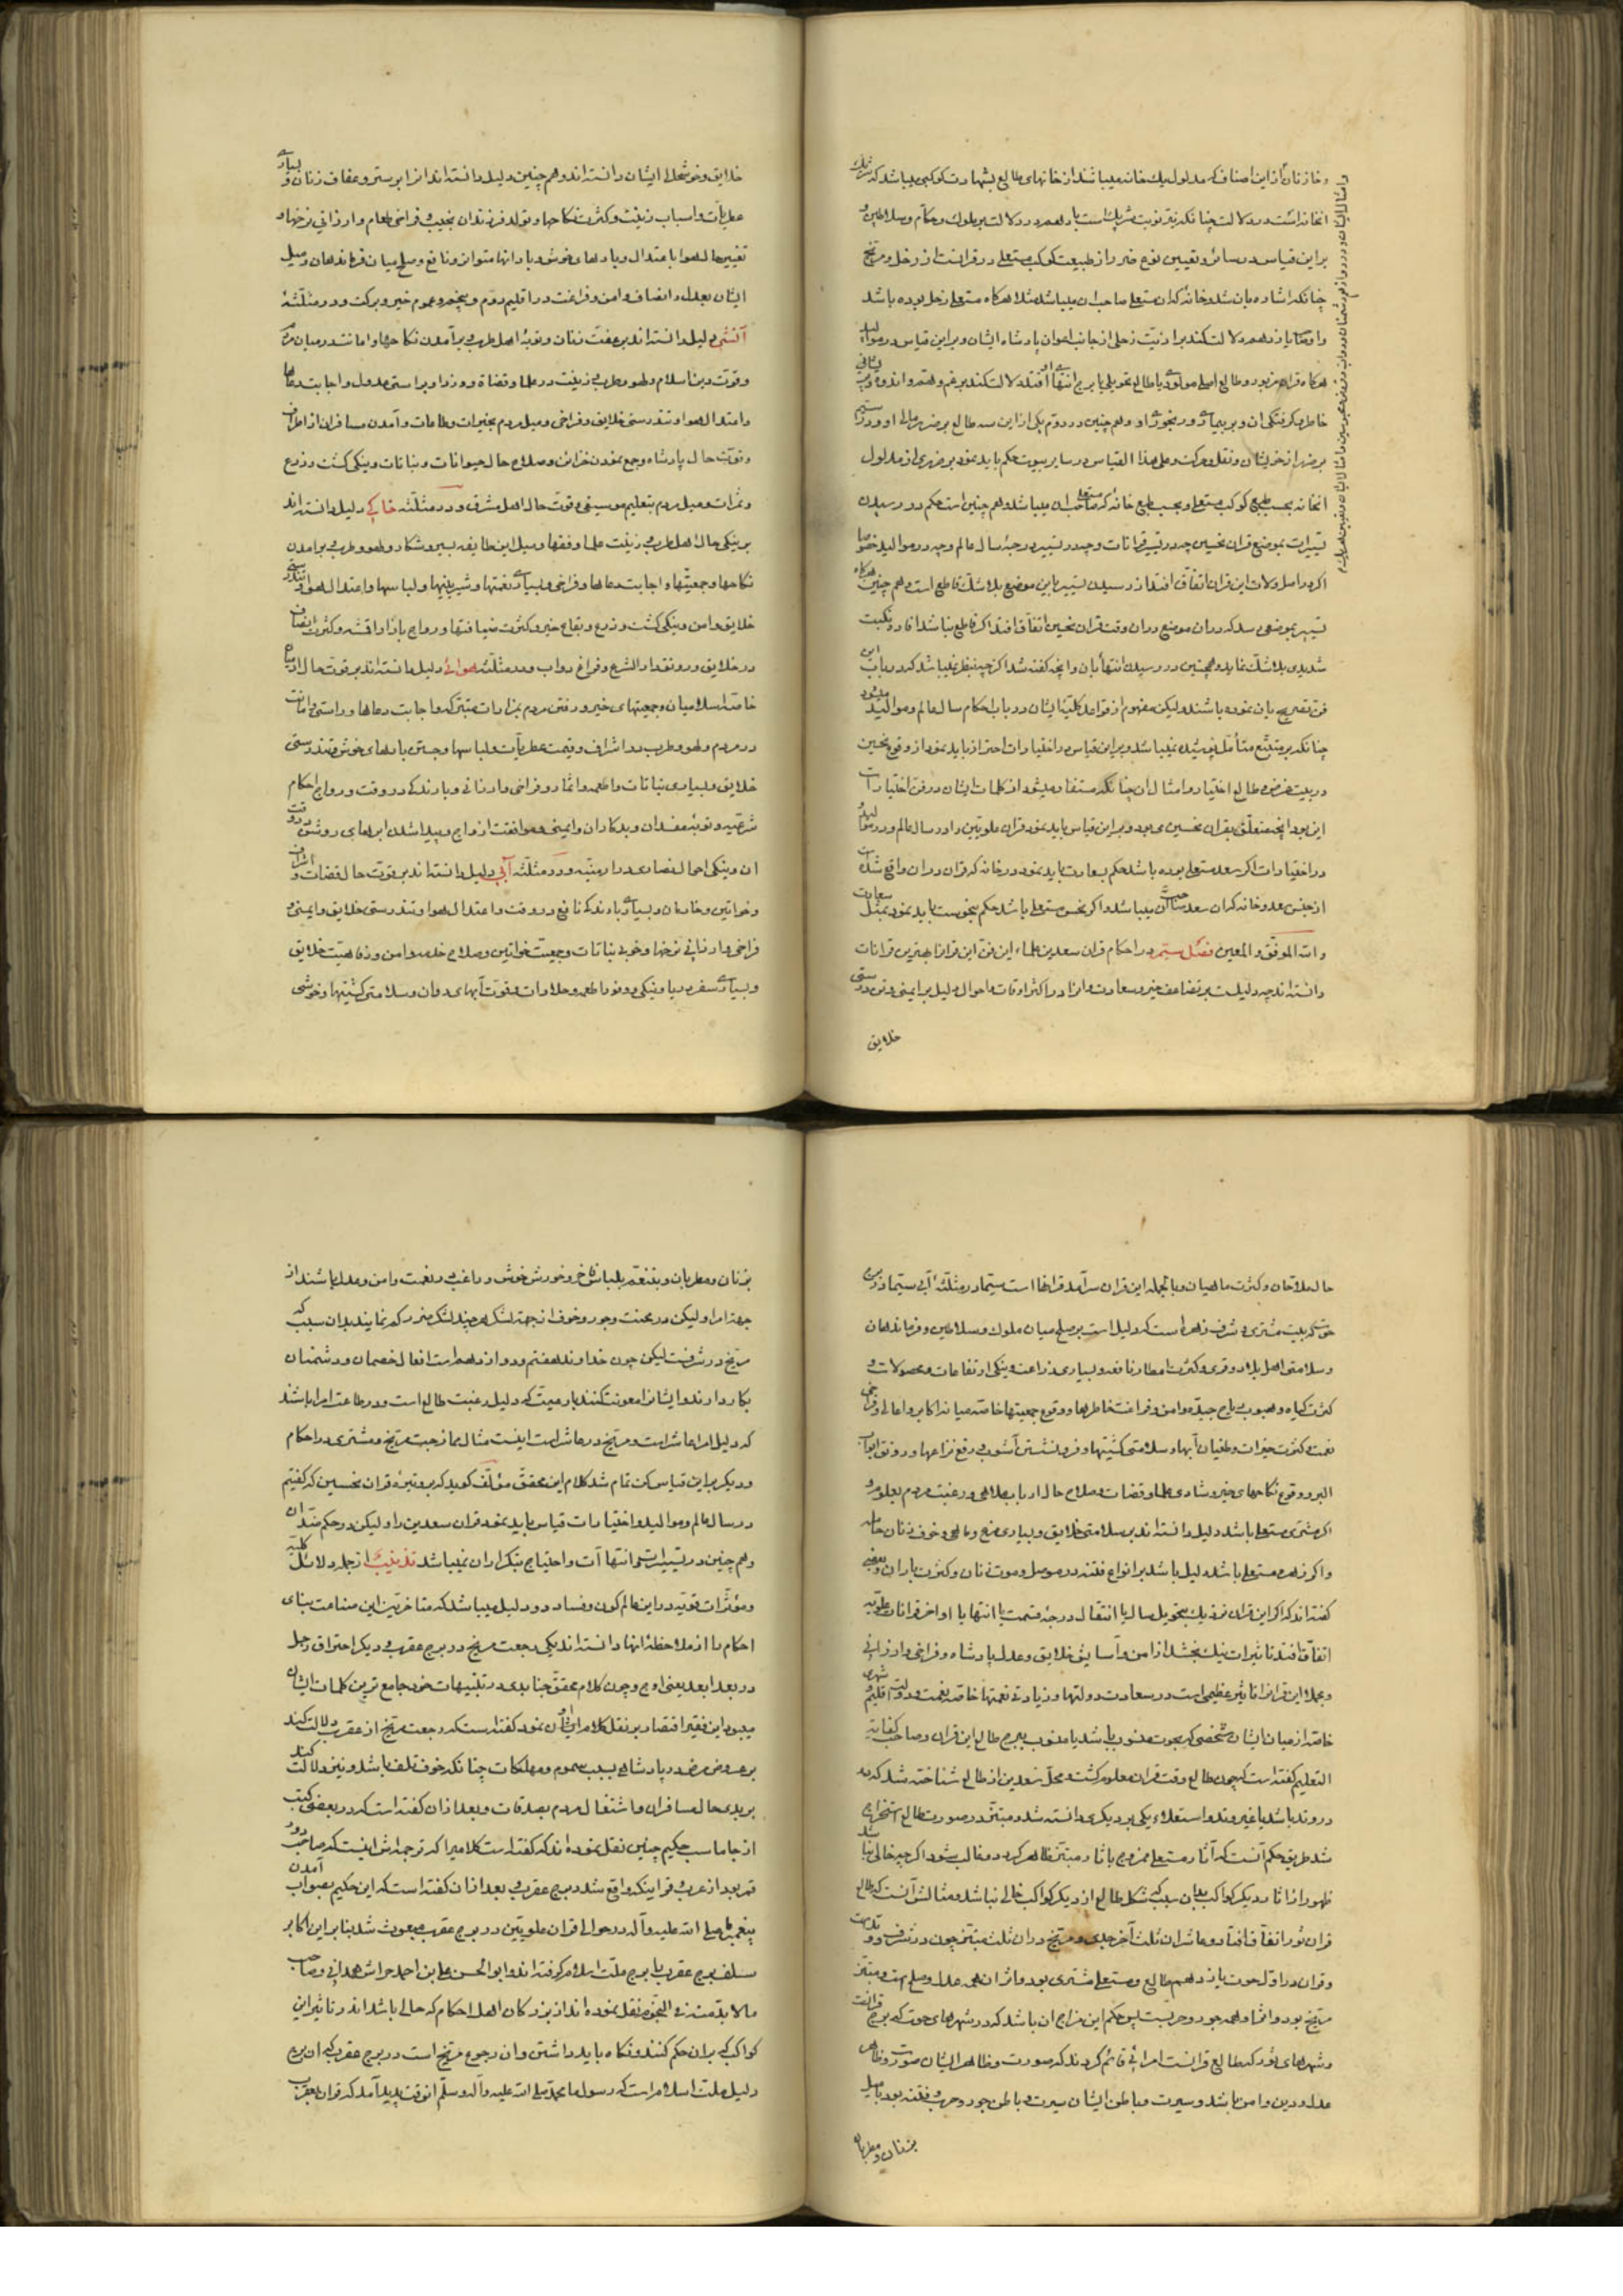 و خازنان از این اصناف که مدلول یک خانه میباشند از خانهای طالع بشهادت کوکبی میباشد که شریک
انخانه است در دلالت چنانکه نیز نوبت شریک است با دهم در دلالت بر ملوک و حکام و سلاطین و
براین قیاس در سائر و تعیین نوع خیر و از طبیعت کوکب مستعلی در قرانست از زحل و مریخ
چنانکه اشاره بان شد و خانه که ان مستعلی صاحب ان میباشد مثلا هرگاه مستعلی زحل بوده باشد
و او صاحب یازدهم دلالت کند بر اذیت زحلی از جانب اعوان پادشاه ایشان و براین قیاس در موالید
هرگاه قران مزبور در طالع اصل مولود یا طالع تحویل یا برج انتها افتد دلالت کند بر غم و هم و اندوه و پریشانی
خاطر و گرفتگی ان و بر بیماری و رنجوری او و هم چنین در دوم یکی از این سه طالع بر ضرر مالی او و در سیم
بر ضرر از خویشان و نقل و حرکت و علی هذا القیاس در سایر بیوت حکم باید نمود بر ضرری از مدلول
انخانه بحسب طبع کوکب مستعلی و بحسب طبع خانه که صاحب ان میباشد و هم چنین است حکم در رسیدن
تسییرات بموضع قران نحسین چه در تسییر قرانات و چه در تسییر درجه سال عالم و چه در موالید خصوصا
اگر در اصل ولات این قران اتفاق افتد از رسیدن تسییر باین موضع بلا شک قاطع است و هم چنین هرگاه
تسییر بموضعی رسد که دران موضع دران وقت قران نحسین اتفاق افتد اگر قاطع نباشد افاده نکبت
شدیدی بلا شک نماید و همچنین در رسیدن انتها بان و انچه گفته شد اگر چه بنظر نمیباشد که در باب این
فن تصریح بان نموده باشند و لیکن مفهوم از قواعد کلیه ایشان در باب احکام سال عالم و موالید میشود
چنانکه بر متتبع متأمل پوشیده نمیباشد و براین قیاس در اختیارات احتراز باید نمود از وقوع نحسین
در بیت غرض و طالع اختیار و امثال ان چنانکه مستفاد میشود از کلمات ایشان در فن اختیارات
این بود انچه متعلق بقران نحسین می بود و براین قیاس باید نمود قران علویین را در سال عالم و در موالید
در اختیارات اگر سعد مستعلی بوده باشد حکم بسعادت باید نمود در خانه که قران دران واقع شده است
از جنس سعد و خانه که ان سعد صاحب آن میباشد و اگر نحس مستعلی باشد حکم بنحوست باید نمود بمثل سعادت
و الله الموفق و المعین فصل ستیم در احکام قران سعدین علماء این فن این قرانرا بهترین قرانات
دانسته اند چه دلیلست بر تضاعف خیر و سعادت و انرا در اکثر اوقات و احوال دلیل بر ایمنی و تن درستی
خلایق
خلایق و خوشحالی ایشان دانسته اند و هم چنین دلیل دانسته اند انرا بر ستر و عفاف زنان و بسیاری
عطریات و اسباب زینت و کثرت نکاحها و تولد فرزندان نجیب و فراخی طعام و ارزانی نرخها و
تغییر حال هوا باعتدال و بادها و خوش و بارانها متواتر و نافع و صلح میان فرماندهان و میل
ایشان بعدل و انصاف و امن و فراغت در اقلیم دوم و پنجم و عموم خیر و برکت و در مثلثه
آتشی دلیل دانسته اند بر عفت زنان و توبه اهل طرب و برآمدن نکاحها و امانت در میان مردم
و قوت دین اسلام و لهو و طرب و زینت در علما و قضاة و وزرا و بر راستی عدول و اجابت دعاها
و اعتدال هوا و تندرستی خلایق و فراخی و میل مردم بخیرات و طاعات و آمدن مسافران از اطراف
و قوت حال پادشاه و جمع نمودن خزائن و صلاح حال حیوانات و نباتات و نیکی کشت و زرع
و ثمرات و میل مردم بتعلیم موسیقی و قوت حال اهل مشرق و در مثلثه خاکی دلیل دانسته اند
بر نیکی حال اهل طرب و زینت علما و فقها و میل این طایفه بسیر و شکار و لهو و طرب و برامدن
نکاحها و جمعیتها و اجابت دعاها و فراخی و بسیاری نعمتها و شیرینیها و لباسها و اعتدال هوا و تندرستی
خلایق و امن و نیکی کشت و زرع و بقاع خیر و کثرت ضیافتها و رواج بازار اقمشه و کثرت انصاف
در خلایق و رونق دار الشرع و فراغ دواب و در مثلثه هوائی دلیل دانسته اند بر قوت حال
خاصه اسلامیان و جمعیتهای خیر و رفتن مردم بمزارات متبرکه و اجابت دعاها و راستی و امانت
در مردم و لهو و طرب در اشراف و قیمت عطریات و لباسها و جستن بادهای خوش و تندرستی
خلایق و بسیاری نباتات و اطعمه و اثمار و فراخی و ارزانی و بارندگی در وقت و رواج احکام
شرعیه و توبه مفسدان و بدکاران و ایمنی و موافقت ازواج و پیدا شدن ابرهای روشن در وقت
ان و نیکی احوال نصاری در ارمنیه و در مثلثه آبی دلیل دانسته اند بر قوت حال قضات و اشراف
و خواتین و خادمان و بسیاری بارندگی نافع در وقت و اعتدال هوا و تندرستی خلایق و ایمنی و
فراخی و ارزانی نرخها و خوبی نباتات و جمعیت خواتین و صلاح خلعه و امن و رفاهیت خلایق
و بسیاری سفر دریا و نیکی و وفور اطعمه و حلاوات و قوت آبهای روان و سلامتی کشتیها و خوشی
حال ملاحان و کثرت ماهیان و بالجمله این قران سرآمد قرانها است سیما در مثلثه آبی سیما در برج
حوت که بیت مشتری و شرف زهره است که دلیل است بر صلح میان ملوک و سلاطین و فرماندهان
و سلامتی اهل بلاد و قری و کثرت امطار نافعه و بسیاری زراعت و نیکی ارتفاعات و محصولات و
کثرت گیاه و هبوب ریاح جیده و امن و فراغت خاطرها و وقوع جمعیتها خاصه میانه اکابر و اعالی و فراخی
نعمت و کثرت خیرات و طغیان آبها و سلامتی کشتیها و فرو نشستن آشوب و رفع نزاعها و رونق ابواب
البر و وقوع نکاحهای خیر و شادی علما و قضات و صلاح حال ارباب ملاهی و رغبت مردم بعلوم و
اگر مشتری مستعلی باشد دلیل دانسته اند بر سلامتی خلایق و بسیاری و خوف زنان حامله
و اگر زهره مستعلی باشد دلیل باشد بر انواع فتنه در موصل و موت زنان و کثرت باران و بعضی
گفته اند که اگر این قران نزدیک بتحویل سال یا انتقال درجه قسمت یا انتها یا اواخر قرانات علویه
اتفاق افتد تاثیرات نیک بخشد از امن و آسایش خلایق و عدل پادشاه و فراخی و ارزانی
و بجمله این قرانرا تاثیر عظیمی است در سعادت دولتها و زیادتی نعمتها خاصه نعمت و دولت اقلیم و شهری
خاصه از میان ایشان شخصی که بحوت منسوب باشد یا منسوب ببرج طالع این قران و صاحب کفایة
التعلیم گفته است که چون طالع وقت قران معلوم گشت و محل نیرین از طالع شناخته شد که در
در وتد باشد یا غیر وتد و استعلاء یکی بر دیگری دانسته شد و مبتز در صورت طالع استخراج
شد طریق حکم آنست که آثار مستعلی ممزوج باثار مبتز ظاهر گردد و غالب شود اگر چه خالی نباشد
ظهور از اثار دیگر کواکب بدان سبب که شکل طالع از دیگر کواکب خالی نباشد و مثالش آنست که طالع
قران ثور اتفاق افتاد و عاشر ان ثلث آخر جدی و مریخ دران ثلث مبتز چون در شرف و وتد است
و قران در اول حوت یازدهم طالع و مستعلی مشتری بود و اثر ان همه عدل و صلح است و مبتز
مریخ بود و اثر او همه جور و حربست پس حکم این مزاج ان باشد که در شهرهای حوت که برج قرانست
و شهرهای ثور که طالع قرانست امرائی قائم گردند که صورت و ظاهر ایشان صورت و ظاهر
عدل و دین و امن باشد و سیرت و باطن ایشان سیرت و باطن جور و حرب و فتنه بود با میل
بزنان و مطربان
بزنان و مطربان و بتنعم بلباس فاخر و خورش خوش و راغب و نعمت و امن و عدل باشند از
جهت امرا و لیکن در محنت و جور و خوف از جهت لشکر هر چند لشکر ضرر کم نمایند بدان سبب که
مریخ در شرفست لیکن چون خداوند هفتم و دوازدهم است افعال خصمان و دشمنان
بکار دارند و ایشانرا معونت کنند با رعیت که دلیل رعیت طالع است و در طاعت امرا باشند
که دلیل امرا عاشر است و مریخ در عاشر است اینست مثال ممازجت مریخ و مشتری در احکام
و دیگر براین قیاس کن تمام شد کلام این محقق مؤلف گوید که بر وتیره قران نحسین که گفتیم
در سال عالم و موالید و اختیارات قیاس باید نمود قران سعدین را و لیکن در حکم ضد ان
و هم چنین در تسییرات و انتها آت و احتیاج بتکرار ان نمیباشد تذنیب از جمله دلائل کلیه
و مؤثرات قویه در این عالم کون و فساد دو دلیل میباشد که متاخرین این صناعت بنای
احکام را از ملاحظه انها دانسته اند یکی رجعت مریخ در برج عقرب و دیگر احتراق زحل
در بعد ابعد یعنی اوج و چون کلام محقق جنابدی در تنبیهات خود جامع ترین کلمات ایشان
میبود این فقیر اقتصار بر نقل کلام ایشان نمود گفته است که رجعت مریخ از عقرب دلالت کند
بر عروض مرض در پادشاه بسبب سموم و مهلکات چنانکه خوف تلف باشد و نیز دلالت کند
بر بدی حال مسافران و اشتغال مردم بصدقات و بعد ازان گفته است که در بعضی کتب
از جاماسب حکیم چنین نقل نموده اند که گفته است کلامیرا که ترجمه اش اینست که صاحب دور
قمر بعد از عرب و قراینکه واقع شد در برج عقرب و بعد ازان گفته است که این حکیم بصواب آمدن
پیغمبر ما صلی الله علیه و آله در حوالی قران علویین در برج عقرب مبعوث شد بنا براین اکابر
سلف برج عقرب را برج ملت اسلام گرفته اند و ابو الحسن علی بن احمد حراش همدانی و صاحب
مالا بد منه فی النجوم نقل نموده اند از بزرگان اهل احکام که حالی باشد اندر تاثیر این
کواکب که بران حکم کنند و نگاه باید داشتن و ان رجوع مریخ است در برج عقرب که ان برج
دلیل ملت اسلام است که رسول ما محمد صلی الله علیه و آله و سلم انوقت پدید آمد که قران بعقرب